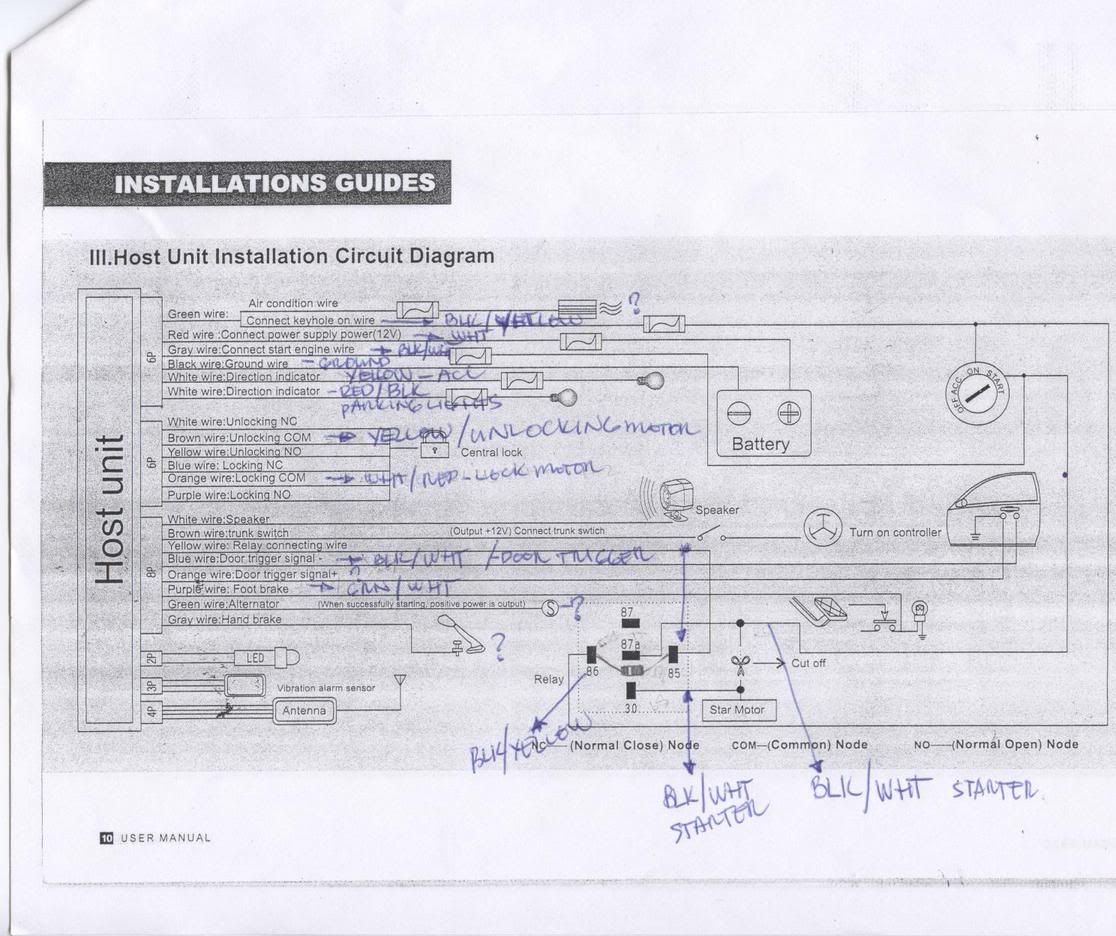 INSTALLATIONS GUIDES
III.Host Unit Installation Circuit Diagram
Host unit
6P
Green wire:
Air condition wire
?
Connect keyhole on wire
BLK/YELLOW
Red wire :Connect power supply power(12V)
WHT
Gray wire:Connect start engine wire
BLK/WHT
Black wire:Ground wire
GROUND
White wire:Direction indicator
YELLOW - ACC
White wire:Direction indicator
RED/BLK
PARKING LIGHTS
OFF ACC ON START
Battery
6P
White wire:Unlocking NC
Brown wire:Unlocking COM
YELLOW/UNLOCKING MOTOR
Yellow wire:Unlocking NO
Central lock
Blue wire: Locking NC
Orange wire:Locking COM
WHT/RED-LOCK MOTOR
Purple wire:Locking NO
8P
White wire:Speaker
Speaker
Brown wire:trunk switch
(Output +12V) Connect trunk swtich
Turn on controller
Yellow wire: Relay connecting wire
Blue wire:Door trigger signal -
BLK/WHT /DOOR TRIGGER
Orange wire:Door trigger signal+
Purple wire: Foot brake
GRN/WHT
Green wire:Alternator
(When successfully starting, positive power is output)
S
?
Gray wire:Hand brake
?
87
87a
86
85
30
Relay
Cut off
Star Motor
2P
LED
3P
Vibration alarm sensor
4P
Antenna
BLK/YELLOW
NC——(Normal Close) Node
COM—(Common) Node
NO——(Normal Open) Node
BLK/WHT
STARTER
BLK/WHT STARTER
10 USER MANUAL